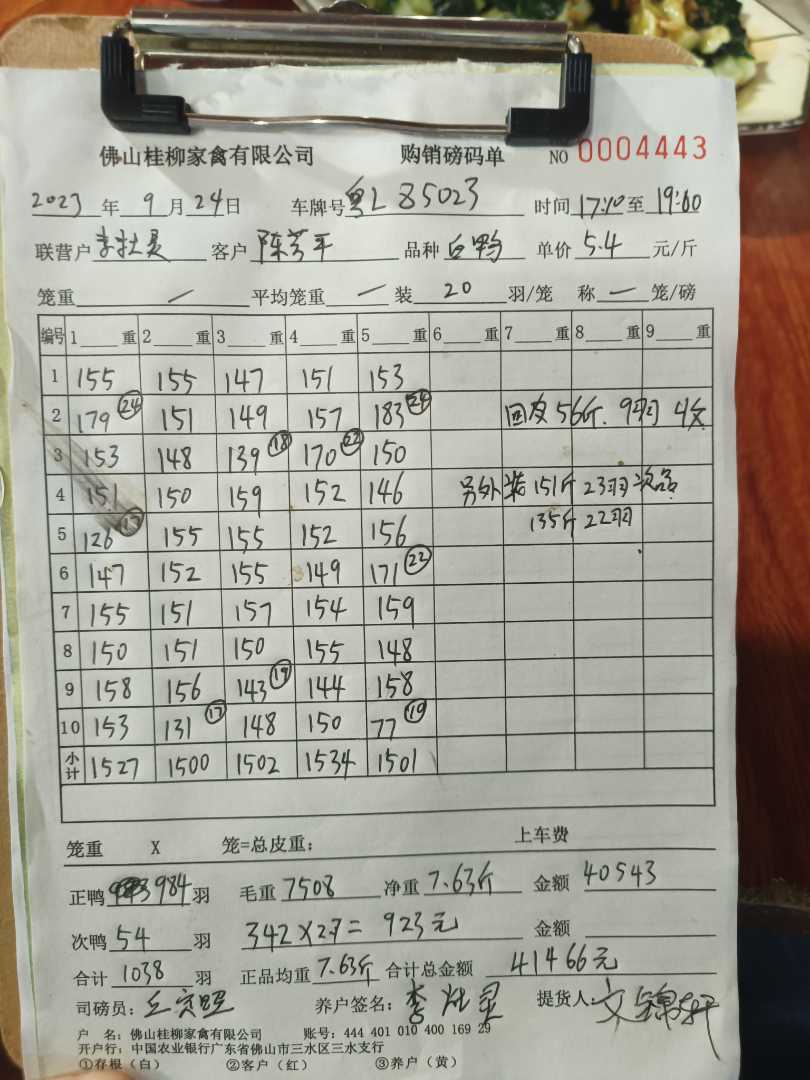 佛山桂柳家禽有限公司 购销磅码单 NO 0004443
2023 年 9 月 24 日 车牌号 粤L 85023 时间 17:10 至 19:00
联营户 李灶灵 客户 陈芳平 品种 白鸭 单价 5.4 元/斤
笼重 — 平均笼重 — 装 20 羽/笼 称 — 笼/磅
编号 1 重 2 重 3 重 4 重 5 重 6 重 7 重 8 重 9 重
1 155 155 147 151 153
2 179 ㉔ 151 149 157 183 ㉔ 回皮 56斤. 9羽
3 153 148 139 ⑱ 170 ㉒ 150
4 151 150 159 152 146 另外 151斤 23羽
5 126 ⑰ 155 155 152 156 135斤 22羽
6 147 152 155 149 171 ㉒
7 155 151 157 154 159
8 150 151 150 155 148
9 158 156 143 ⑲ 144 158
10 153 131 ⑰ 148 150 77
小计 1527 1500 1502 1534 1501
笼重 X 笼=总皮重: 上车费
正鸭 984 羽 毛重 7508 净重 7.63斤 金额 40543
次鸭 54 羽 342×2.7= 923元 金额
合计 1038 羽 正品均重 7.63斤 合计总金额 41466元
司磅员: 养户签名: 李灶灵 提货人: 文锦轩
户 名: 佛山桂柳家禽有限公司 账号: 444 401 010 400 169 29
开户行: 中国农业银行广东省佛山市三水区三水支行
①存根(白) ②客户(红) ③养户(黄)